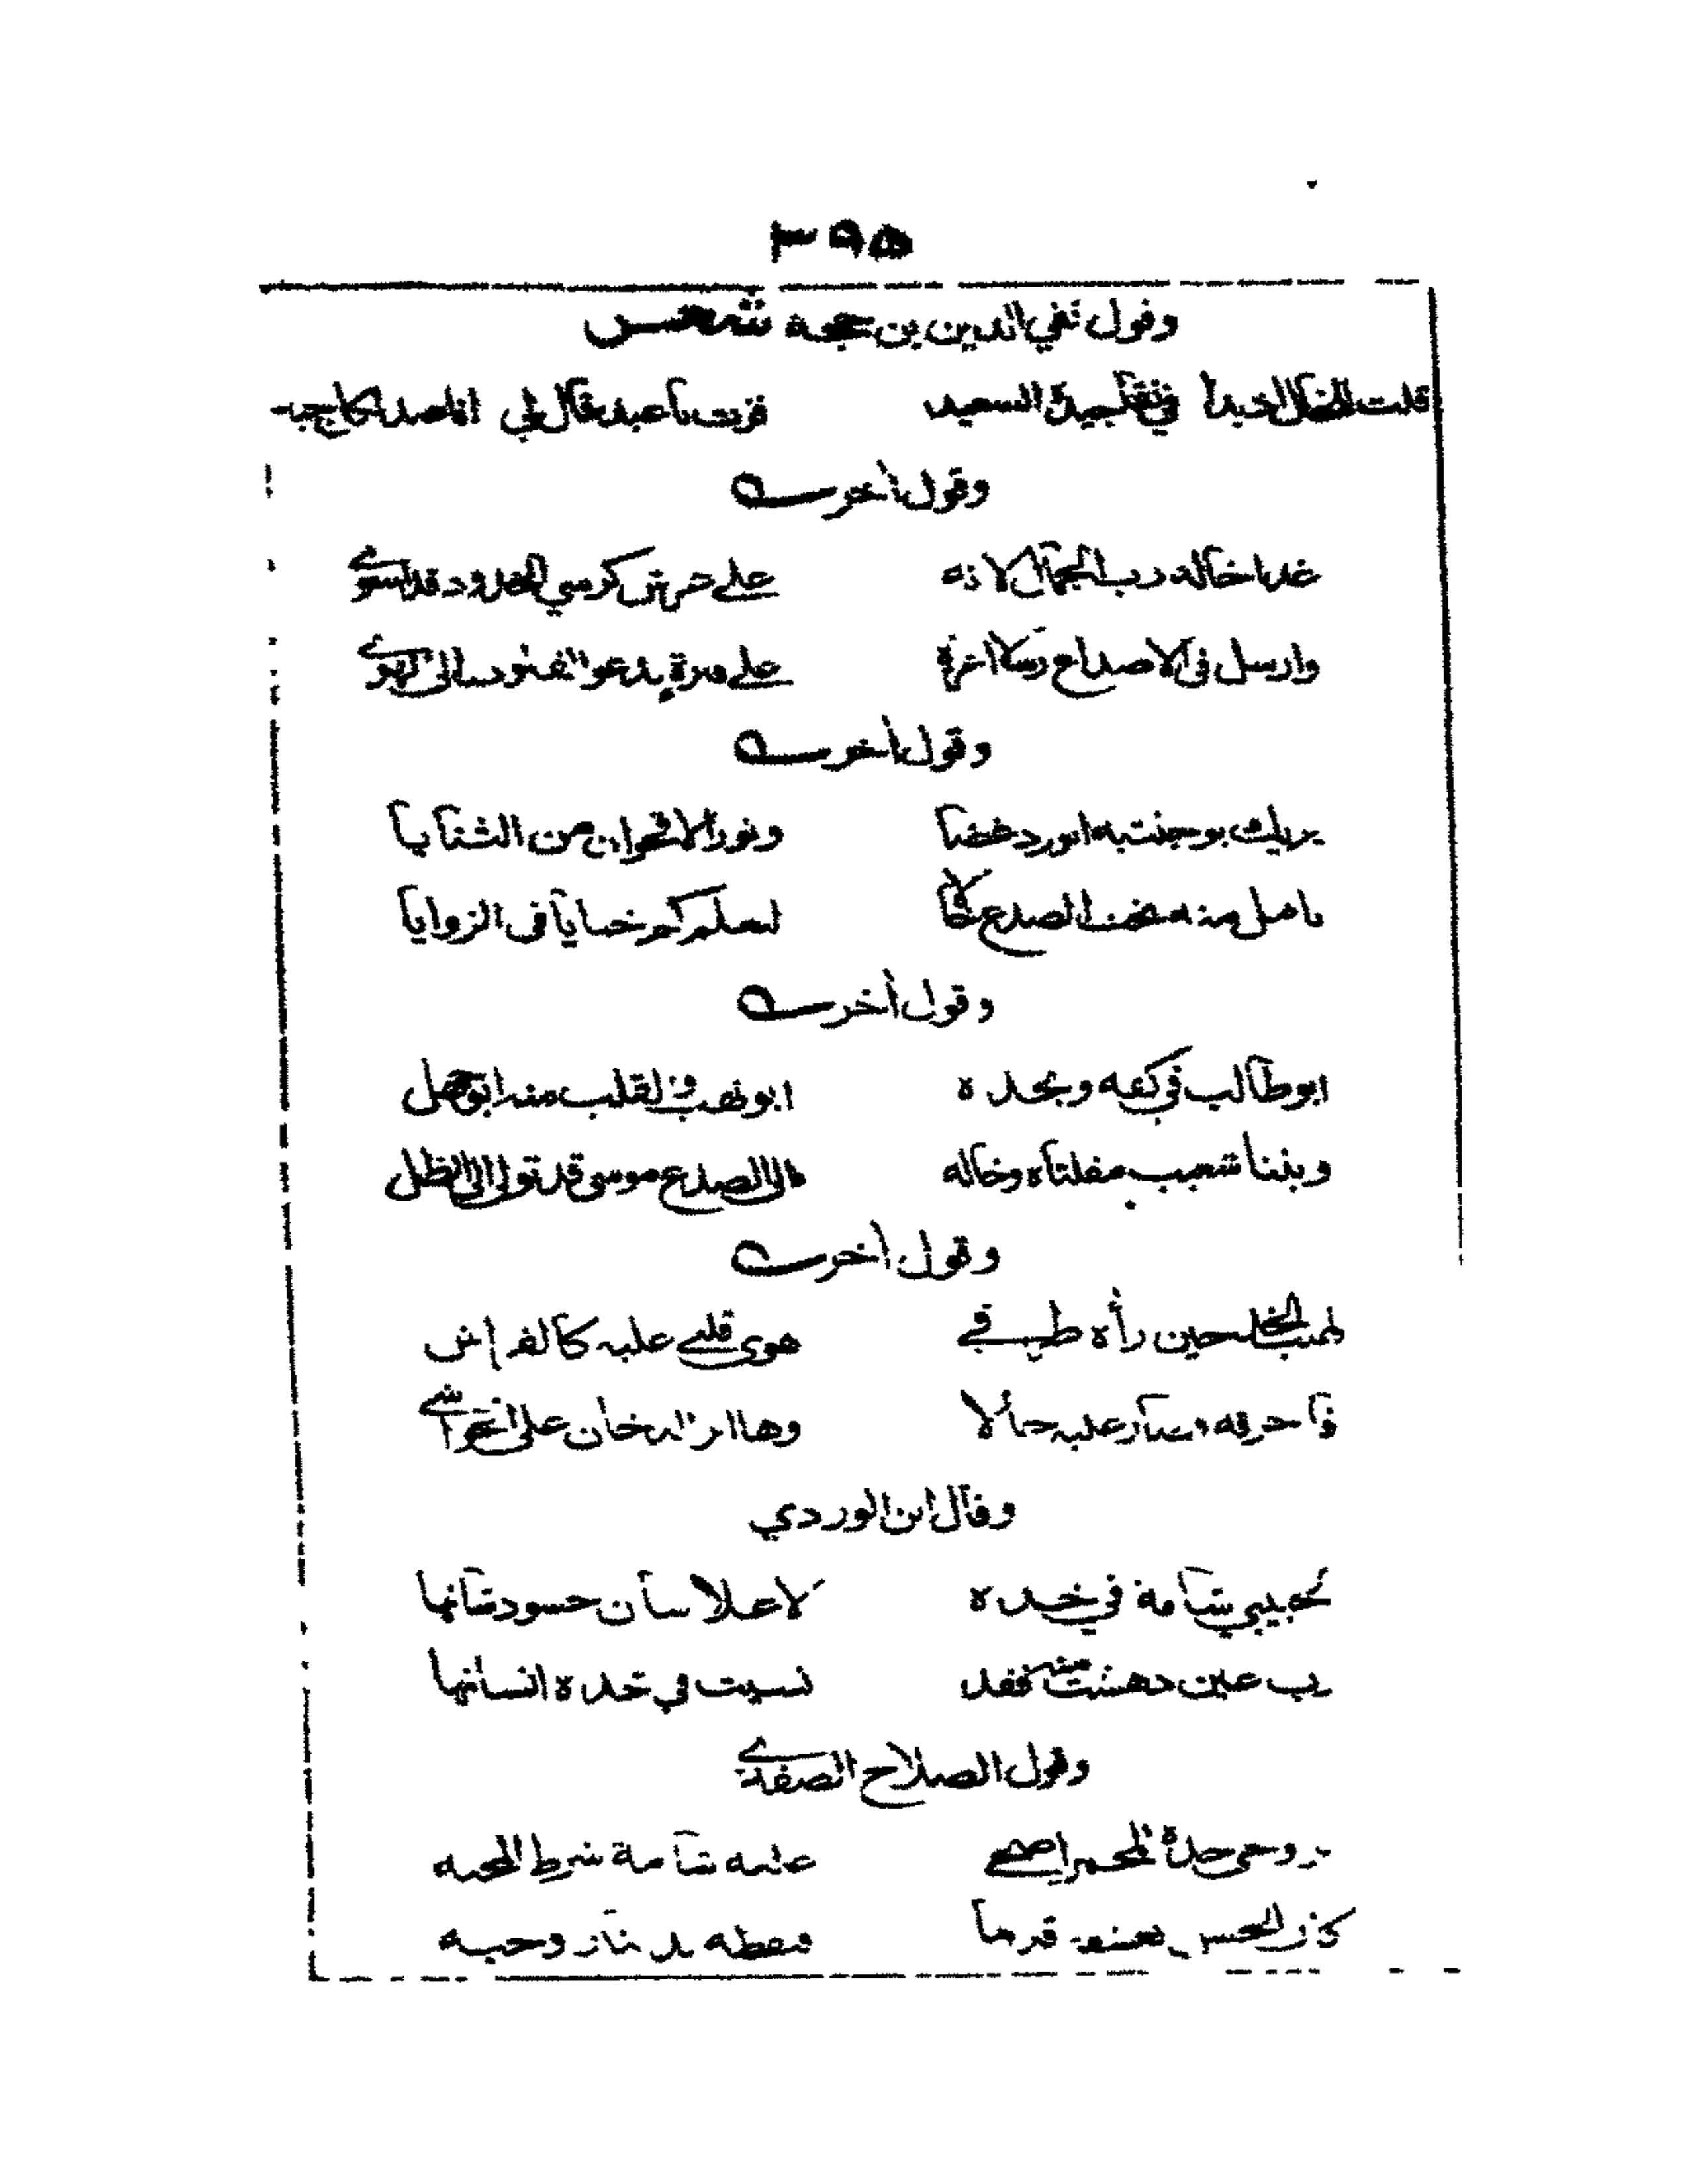 ٣٩٥
وقول تقي الدين بن حجة
قلت للخال اذ بدا في نقا جيده السعيد فزت يا عبد قال لي انا
وقول أخر
غدا خاله رب الجمال لانه على عرش كرسي الخدود قد استوى
وارسل في الاصداغ رسلا اعزة على فترة يدعو القلوب الى الهوى
وقول أخر
يريك بوجنتيه الورد غضا ونور الاقحوان من الثنايا
تامل منه تحت الصدغ خالا لتعلم كم خبايا في الزوايا
وقول أخر
ابو طالب في كفه وبخده ابو لهب والقلب منه ابو جهل
وبنتا شعيب مقلتاه وخاله الى الصدغ موسى قد تولى الى الظل
وقول أخر
لهيب الخد حين رأه طرفي هوى قلبي عليه كالفراش
فاحرقه فصار عليه خالا وها اثر الدخان على الحواشي
وقال ابن الوردي
لحبيبي شامة في خده لا علا شأن حسود شانها
رب عين دهشت منه فقد نسيت في خده انسانها
وقول الصلاح الصفدي
بروحي خده المحمر اضحى عليه شامة شرط المحبه
كأن الحسن يعشقه قديما فنقطه بدينار وحبه